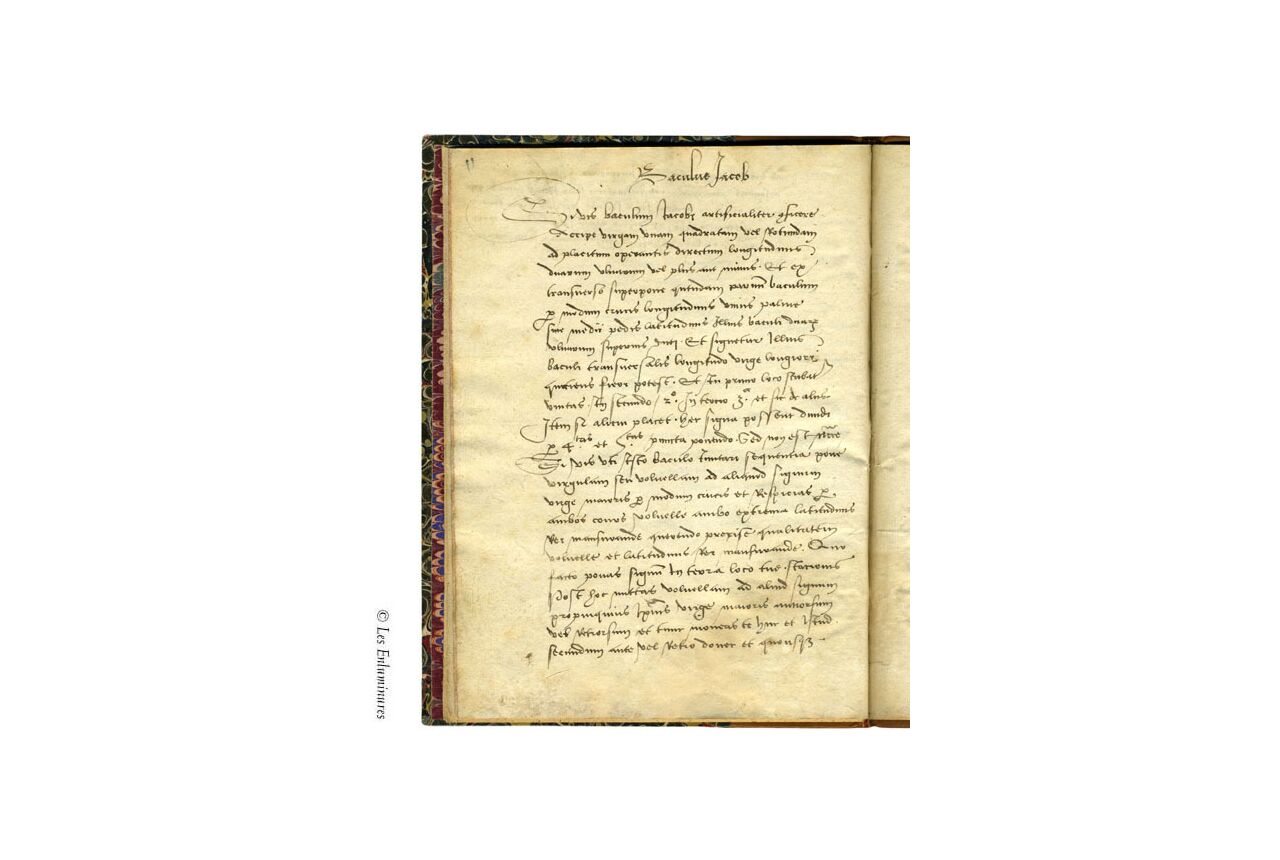 Baculus Jacob
Si vis baculum Jacobi artificialiter 9ficere
Accipe virgam vnam quadratam vel Rotundam
ad placitum operantis directum longitudinis
duarum vlnarum vel plus aut minus. Et ex
transuerso superpone quendam paruum baculum
p modum crucis longitudinis vnius palme
siue medii pedis latitudinis Illius baculi duarum
vlnarum superius Et signetur Illius
baculi transuersalis longitudo virge longiori
quociens fieri potest. Et In primo loco scribat
vnitas. In secundo 2º. In tercio 3ª et sic de aliis
Item si alicui placet. hec signa possent diuidi
p 4tas et puncta ponendo. Sed non est
Si vis vti Isto baculo Imitari sequentia pone
virgulam seu voluellam ad aliquod signum
virge maioris p modum crucis et Respicias p
ambos conos voluelle ambo extrema latitudinis
Rei mensurande querendo precise qualitatem
voluelle et latitudinis Rei mensurande. Quo
facto ponas signum In terra loco tue stacionis
Post hoc mittas voluellam ad aliud signum
propinquius virge maioris antrorsum
vel Retrorsum et tunc moueas te huc et Istud
secundum ante vel Retro donec et quousq3
© Les Enluminures